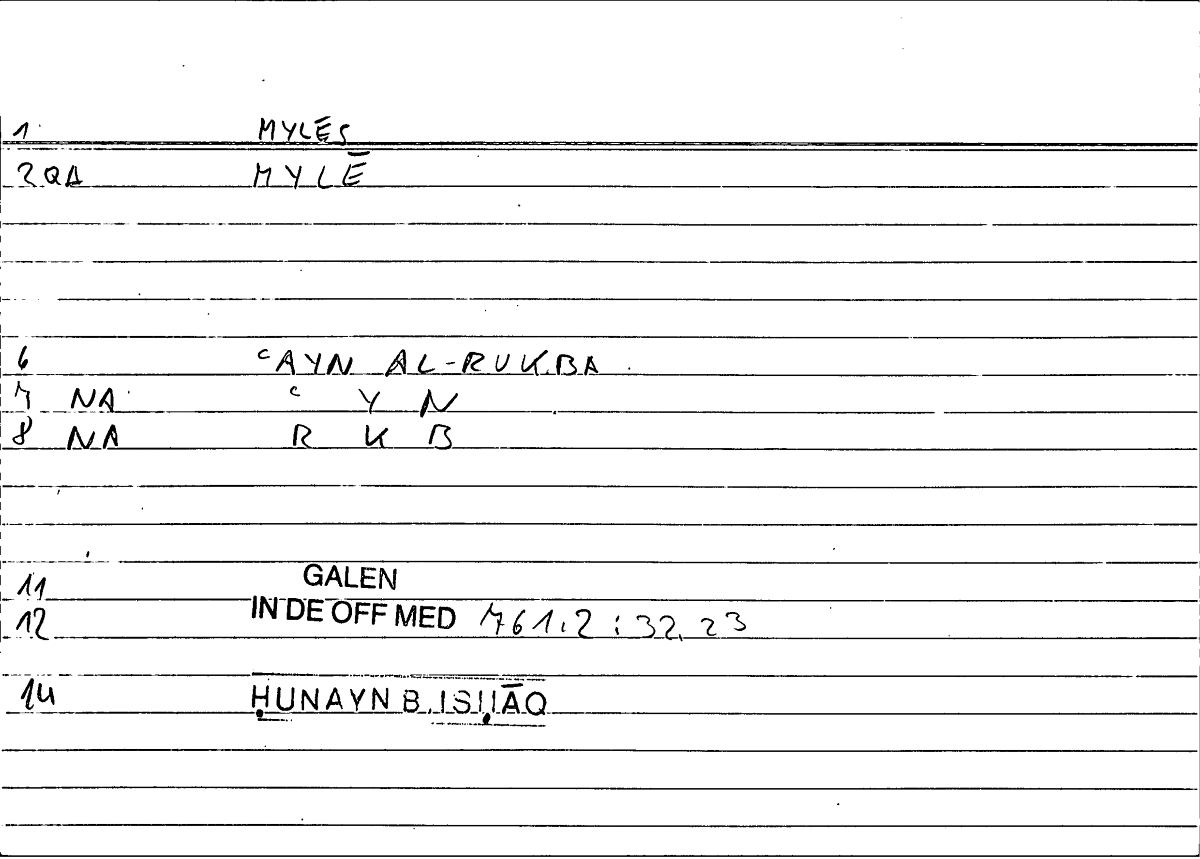 1 MYLĒS
2 QA MYLĒ
6 ᶜAYN AL-RUKBA
7 NA ᶜ Y N
8 NA R K B
11 GALEN
12 IN DE OFF MED 761.2 : 32.23
14 ḤUNAYN B. ISḤĀQ